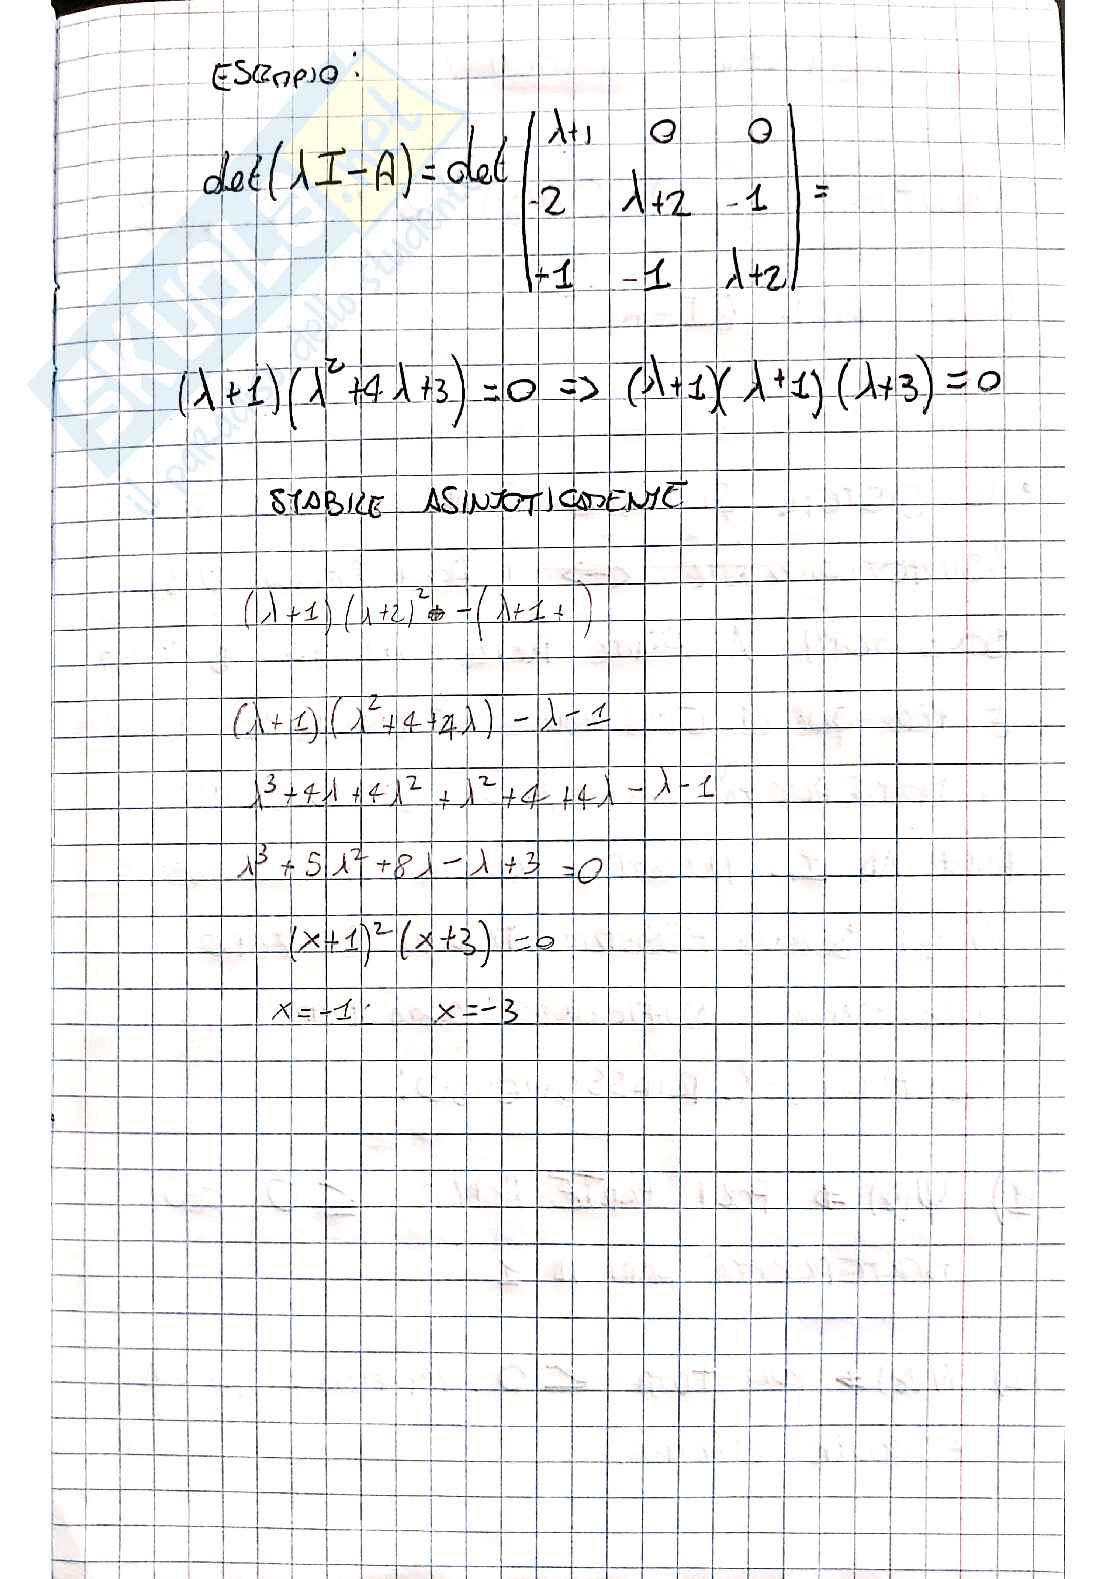 ESEMPIO:
det(λI-A)=det | λ+1 0 0 |
| -2 λ+2 -1 | =
| +1 -1 λ+2 |
(λ+1)(λ²+4λ+3)=0 => (λ+1)(λ+1)(λ+3)=0
STABILE ASINTOTICAMENTE
(λ+1)(λ+2)² -(λ+1+)
(λ+1)(λ²+4+4λ)-λ-1
λ³+4λ+4λ²+λ²+4+4λ-λ-1
λ³+5λ²+8λ-λ+3=0
(x+1)²(x+3)=0
x=-1 x=-3
SKUOLA.net
il paradiso dello studente